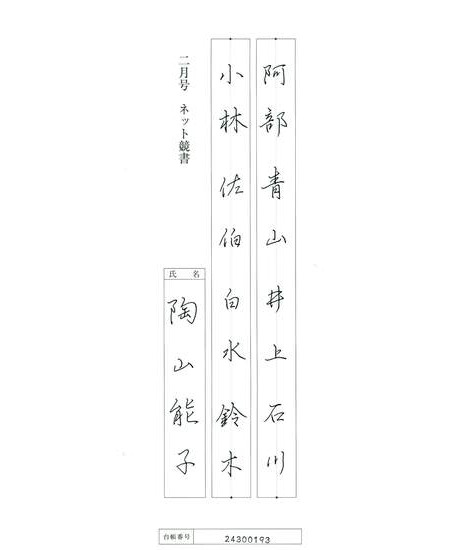 阿部青山井上石川
小林佐伯白水鈴木
二月号 ネット競書
氏名
陶山能子
台帳番号 24300193